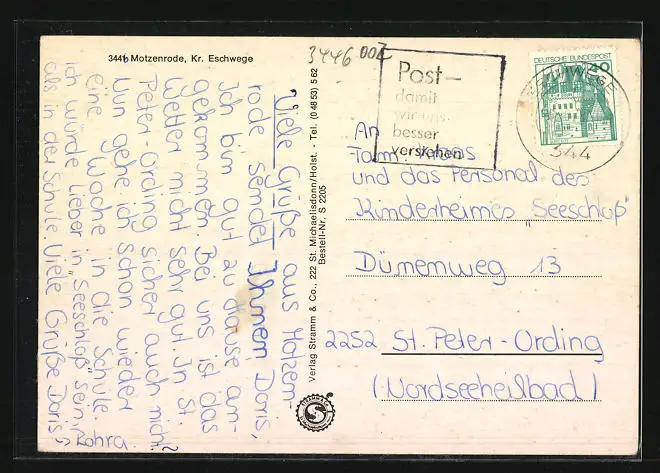 3446 Motzenrode, Kr. Eschwege
3446
Viele Grüße aus Motzen-
rode sendet Ihnen Doris,
Ich bin gut zu Hause an-
gekommen. Bei uns ist das
Wetter nicht sehr gut. In St.
Peter-Ording sicher auch nicht?
Nun gehe ich schon wieder
eine Woche in die Schule.
Ich würde lieber in „Seeschloß" sein,
als in der Schule Viele Grüße Doris
Rohra.
Verlag Stramm & Co., 222 St. Michaelisdonn/Holst. - Tel. (0 48 53) 5 62
Bestell-Nr. S 2205
STRAMM
S
Post–
damit
wir uns
besser
verstehen
ESCHWEGE
344
DEUTSCHE BUNDESPOST
40
An
Fam.
und das Personal des
Kinderheimes „Seeschloß"
Dünenweg 13
2252 St. Peter-Ording
(Nordseeheilbad)